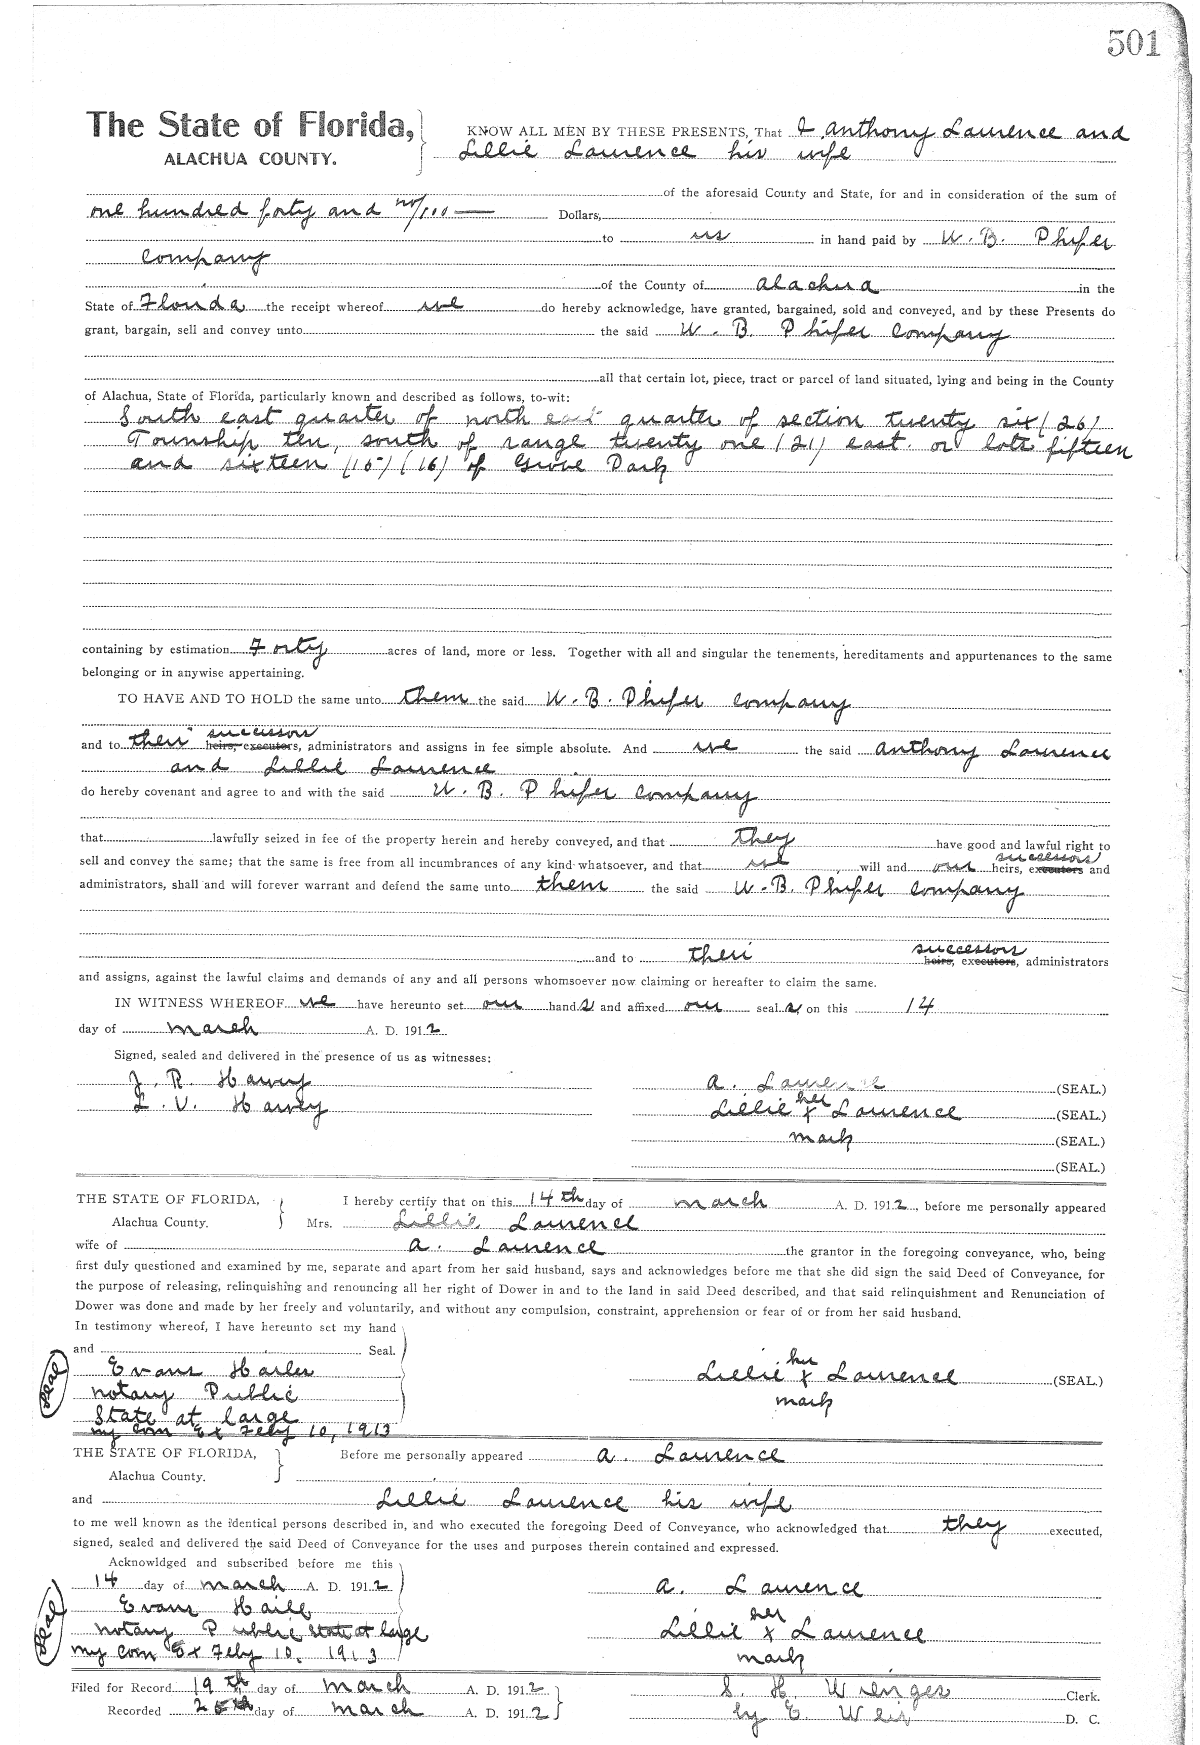 501
The State of Florida,
ALACHUA COUNTY.
KNOW ALL MEN BY THESE PRESENTS, That I Anthony Laurence and
Lillie Laurence his wife
of the aforesaid County and State, for and in consideration of the sum of
one hundred forty and no/100 Dollars,
to us in hand paid by W. B. Phifer
Company
of the County of Alachua in the
State of Florida the receipt whereof we do hereby acknowledge, have granted, bargained, sold and conveyed, and by these Presents do
grant, bargain, sell and convey unto the said W. B. Phifer Company
all that certain lot, piece, tract or parcel of land situated, lying and being in the County
of Alachua, State of Florida, particularly known and described as follows, to-wit:
South east quarter of north east quarter of section twenty six (26)
Township ten, south of range twenty one (21) east. or lots fifteen
and sixteen (15) (16) of Grove Park
containing by estimation Forty acres of land, more or less. Together with all and singular the tenements, hereditaments and appurtenances to the same
belonging or in anywise appertaining.
TO HAVE AND TO HOLD the same unto them the said W. B. Phifer Company
successors
and to their heirs, executors, administrators and assigns in fee simple absolute. And we the said Anthony Laurence
and Lillie Laurence
do hereby covenant and agree to and with the said W. B. Phifer Company
that lawfully seized in fee of the property herein and hereby conveyed, and that they have good and lawful right to
successors
sell and convey the same; that the same is free from all incumbrances of any kind whatsoever, and that we will and our heirs, executors and
administrators, shall and will forever warrant and defend the same unto them the said W. B. Phifer Company
successors
and to their heirs, executors, administrators
and assigns, against the lawful claims and demands of any and all persons whomsoever now claiming or hereafter to claim the same.
IN WITNESS WHEREOF we have hereunto set our hands and affixed our seals on this 14
day of March A. D. 1912
Signed, sealed and delivered in the presence of us as witnesses:
J. R. Harvey
A. Laurence (SEAL.)
L. V. Harvey
Lillie her x Laurence (SEAL.)
mark (SEAL.)
(SEAL.)
THE STATE OF FLORIDA,
Alachua County.
I hereby certify that on this 14th day of March A. D. 1912, before me personally appeared
Mrs. Lillie Laurence
wife of A. Laurence the grantor in the foregoing conveyance, who, being
first duly questioned and examined by me, separate and apart from her said husband, says and acknowledges before me that she did sign the said Deed of Conveyance, for
the purpose of releasing, relinquishing and renouncing all her right of Dower in and to the land in said Deed described, and that said relinquishment and Renunciation of
Dower was done and made by her freely and voluntarily, and without any compulsion, constraint, apprehension or fear of or from her said husband.
In testimony whereof, I have hereunto set my hand
and Seal.
Seal
Evans Haile
Lillie her x Laurence (SEAL.)
mark
Notary Public
State at large
my com Ex Feby 10, 1913
THE STATE OF FLORIDA,
Alachua County.
Before me personally appeared A. Laurence
and Lillie Laurence his wife
to me well known as the identical persons described in, and who executed the foregoing Deed of Conveyance, who acknowledged that they executed,
signed, sealed and delivered the said Deed of Conveyance for the uses and purposes therein contained and expressed.
Acknowldged and subscribed before me this
14 day of March A. D. 1912
A. Laurence
Seal
Evans Haile
Notary Public State at large
Lillie her x Laurence
mark
my com Ex Feby 10, 1913
Filed for Record 19th day of March A. D. 1912
S. H. Wienges Clerk.
Recorded 25th day of March A. D. 1912
by E. Weir D. C.